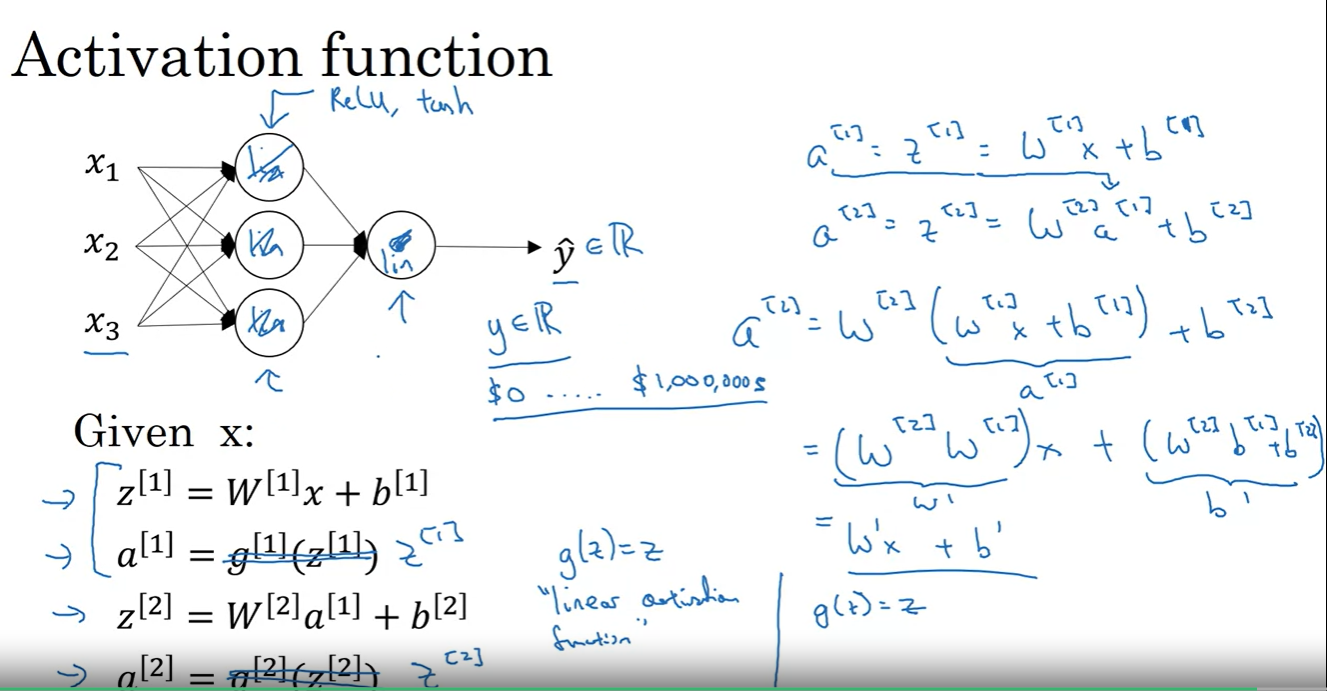 Activation function
ReLU, tanh
x₁
x₂
x₃
lin
ŷ ∈ ℝ
y ∈ ℝ
$0 ..... $1,000,000s
Given x:
→ z^[1] = W^[1]x + b^[1]
→ a^[1] = g^[1](z^[1]) z^[1]
→ z^[2] = W^[2]a^[1] + b^[2]
→ a^[2] = g^[2](z^[2]) z^[2]
g(z) = z
"linear activation
function"
a^[1] = z^[1] = W^[1]x + b^[1]
a^[2] = z^[2] = W^[2]a^[1] + b^[2]
a^[2] = W^[2](W^[1]x + b^[1]) + b^[2]
a^[1]
= (W^[2]W^[1])x + (W^[2]b^[1] + b^[2])
W' b'
= W'x + b'
g(z) = z